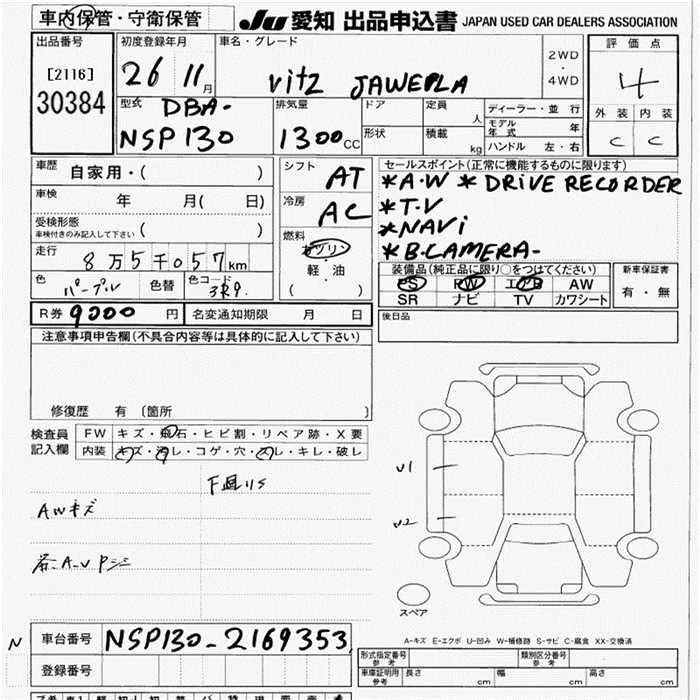 車内保管・守衛保管
JU 愛知 出品申込書 JAPAN USED CAR DEALERS ASSOCIATION
出品番号
[2116]
30384
初度登録年月
26 11月
車名・グレード
VITZ JAWEPLA
2WD
・
4WD
評価点
4
外装 内装
C C
型式 DBA-
NSP130
排気量
1300CC
ドア
形状
定員 人
積載 kg
ディーラー・並行
モデル年式 年
ハンドル 左・右
車歴 自家用・( )
車検 年 月( 日)
受検形態
車検付きのみ記入して下さい ( )
走行 8万5千057km
色 パープル 色替 色コード 3R9.
シフト AT
冷房 AC
燃料
ガソリン
軽・油
( )
セールスポイント(正常に機能するものに限ります)
*A・W *DRIVE RECORDER
*T・V
*NAVI
*B.CAMERA-
装備品(純正品に限り○をつけてください)
PS PW エアB AW
SR ナビ TV カワシート
新車保証書
有・無
R券 9000円 名変通知期限 月 日
後日品
注意事項申告欄(不具合内容等は具体的に記入して下さい)
修復歴 有〔箇所 〕
検査員記入欄
FW キズ・飛石・ヒビ割・リペア跡・X要
内装 キズ・汚レ・コゲ・穴・スレ・キレ・破レ
AWキズ
U1
U2
スペア
A-キズ E-エクボ U-凹み W-補修跡 S-サビ C-腐食 XX-交換済
N
車台番号 NSP130-2169353
登録番号
形式指定番号 参考
類別区分番号 参考
車庫証明用 参考 長さ cm 幅 cm 高さ cm